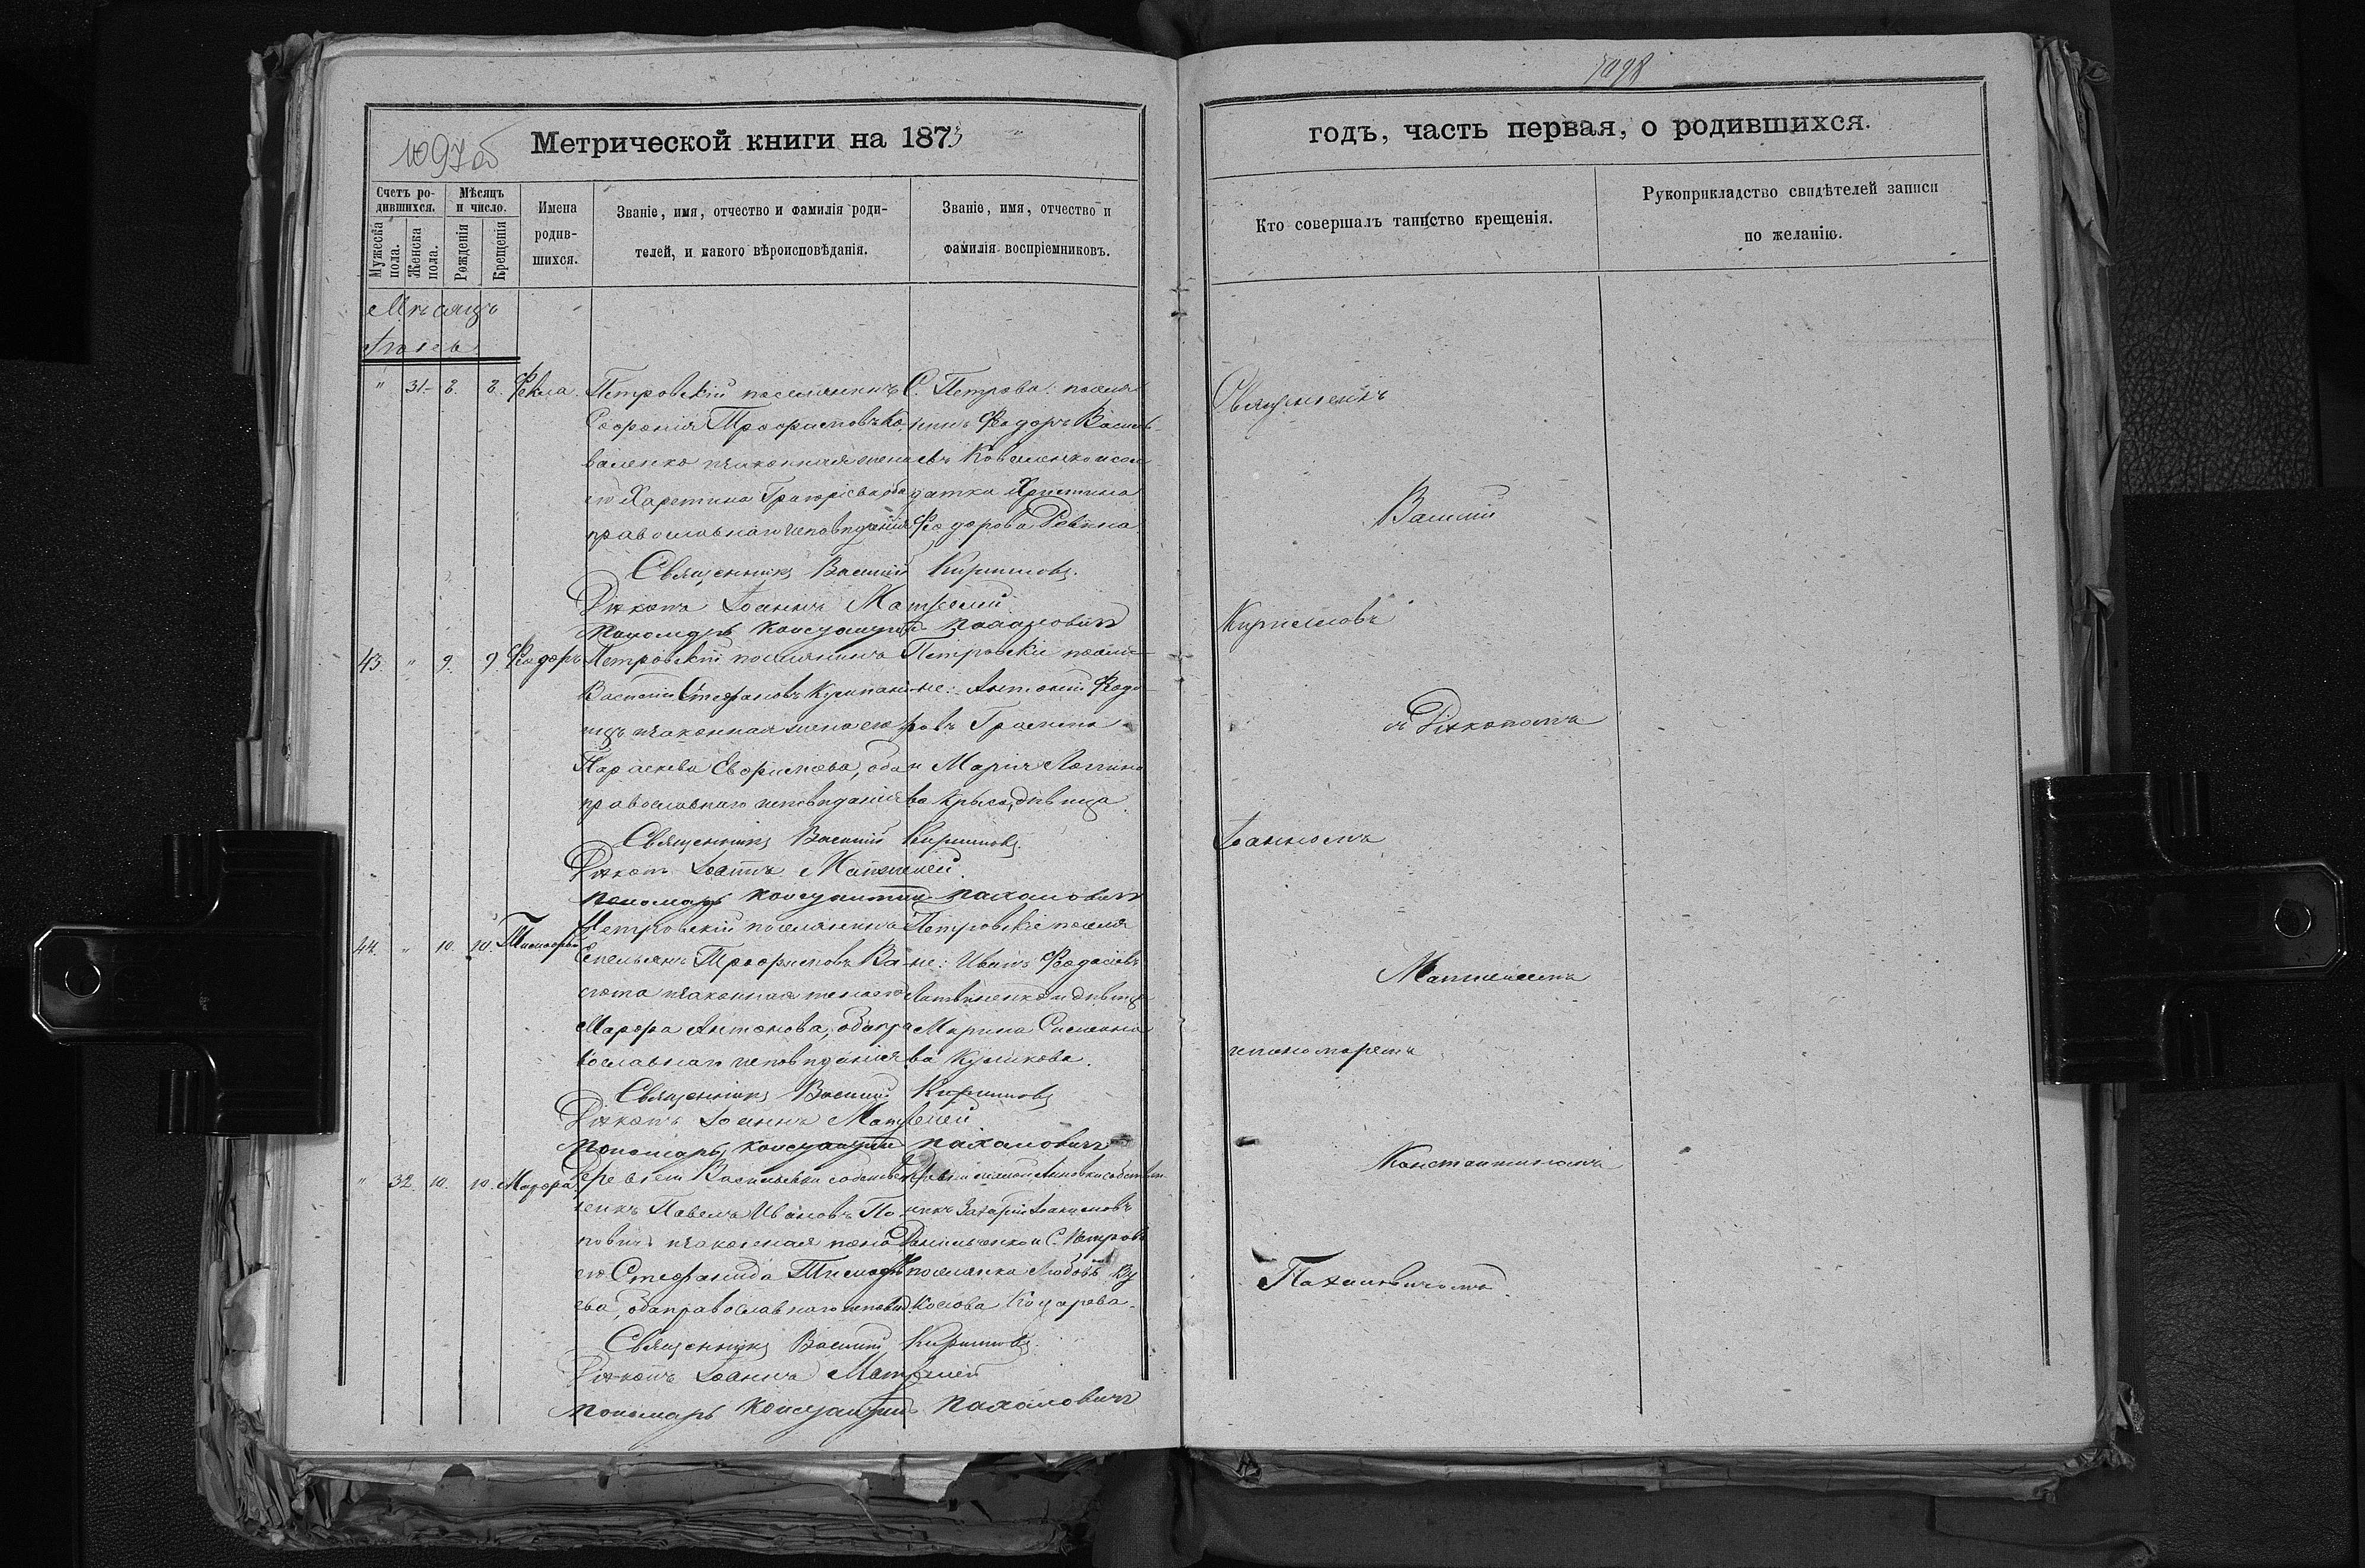 1097об
Метрической книги на 1873
Счетъ ро-
дившихся.
Мужеска
пола.
Женска
пола.
Мѣсяцъ
и число.
Рожденія
Крещенія
Имена
родив-
шихся.
Званіе, имя, отчество и фамилія роди-
телей, и какого вѣроисповѣданія.
Званіе, имя, отчество и
фамилія воспріемниковъ.
Мѣсяцъ
" 31. 8. 8. Фекла
Петровскій поселянинъ
Трофимовъ Ко
валенко и законная жена
его Харитина Григоріева, оба
православнаго исповѣданія
С. Петрова: поселя
нинъ Федоръ Василь
евъ Коваленко и сол
датка Христина
Федорова Ревина
Священникъ Василій Кирилловъ.
Діаконъ Іоаннъ
Пономарь Константинъ Пахаловичъ
43. " 9. 9. Федоръ
Петровскій поселянинъ
Василій Стефановъ
и законная жена его
Параскева Евфимова, оба
православнаго исповѣданія
Петровскіе поселя
не: Антоній Федо
ровъ
и Марія Логвино
ва Крыса, дѣвица
Священникъ Василій Кирилловъ.
Діаконъ Іоаннъ
Пономарь Константинъ Пахаловичъ
44. " 10. 10. Тимофей
Петровскій поселянинъ
Емельянъ Трофимовъ Ва
и законная жена его
Марфа Антонова, оба пра
вославнаго исповѣданія
Петровскіе поселя
не: Иванъ
Литвиненко и дѣвица
Марина Симеоно
ва Куликова.
Священникъ Василій Кирилловъ
Діаконъ Іоаннъ
Пономарь Константинъ Пахаловичъ
" 32. 10. 10. Марфа
Деревни Васильевки собствен
никъ Павелъ Ивановъ По
повичъ и законная жена
его Стефанида Тимофе
ева, оба православнаго исповѣд.
собствен
никъ Захарій Іоакимовъ
Данильченко и С. Петров
поселянка Любовь
Священникъ Василій Кирилловъ.
Діаконъ Іоаннъ
Пономарь Константинъ Пахаловичъ
1098
годъ, часть первая, о родившихся.
Кто совершалъ таинство крещенія.
Рукоприкладство свидѣтелей записи
по желанію.
Священникъ
Василій
Кирилловъ
съ Діакономъ
Іоанномъ
и пономаремъ
Константиномъ
Пахаловичомъ.